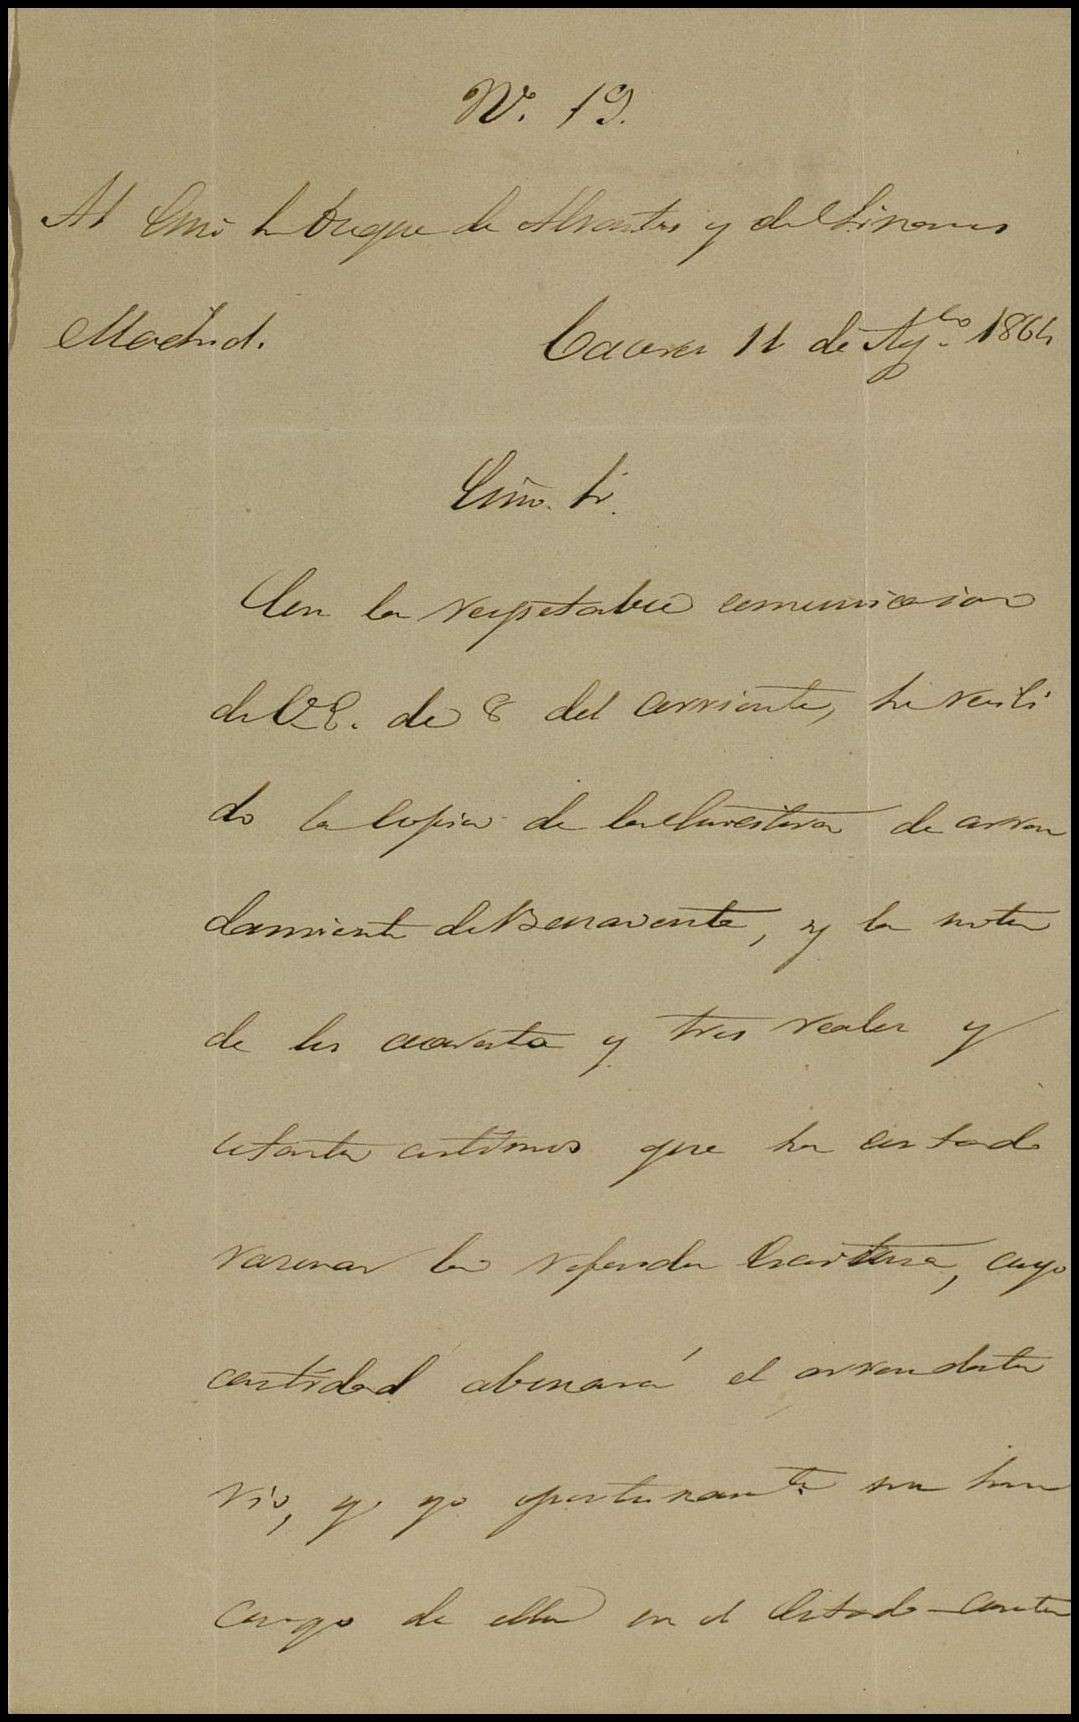 N.º 19.
Al Excmo Sr Duque de Abrantes y de Linares
Madrid. Caceres 11 de Ag.to 1864
Excmo. Sr.
Con la respetable comunicacion
de V.E. de 8 del corriente, he reci
do la copia de la Escritura de arren
damiento de Benavente, y la nota
de los cuarenta y tres reales y
centimos que ha costado
la referida Escritura, cuya
cantidad abonará el arrendata
rio, y yo oportunamte. me hare
cargo de ella en el Estado-cuenta